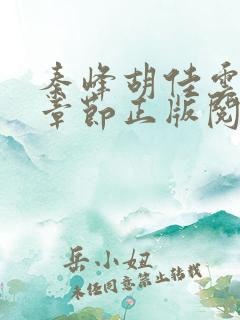 秦峰胡佳雲
章節正版閱
岳小妞
未经同意禁止转载